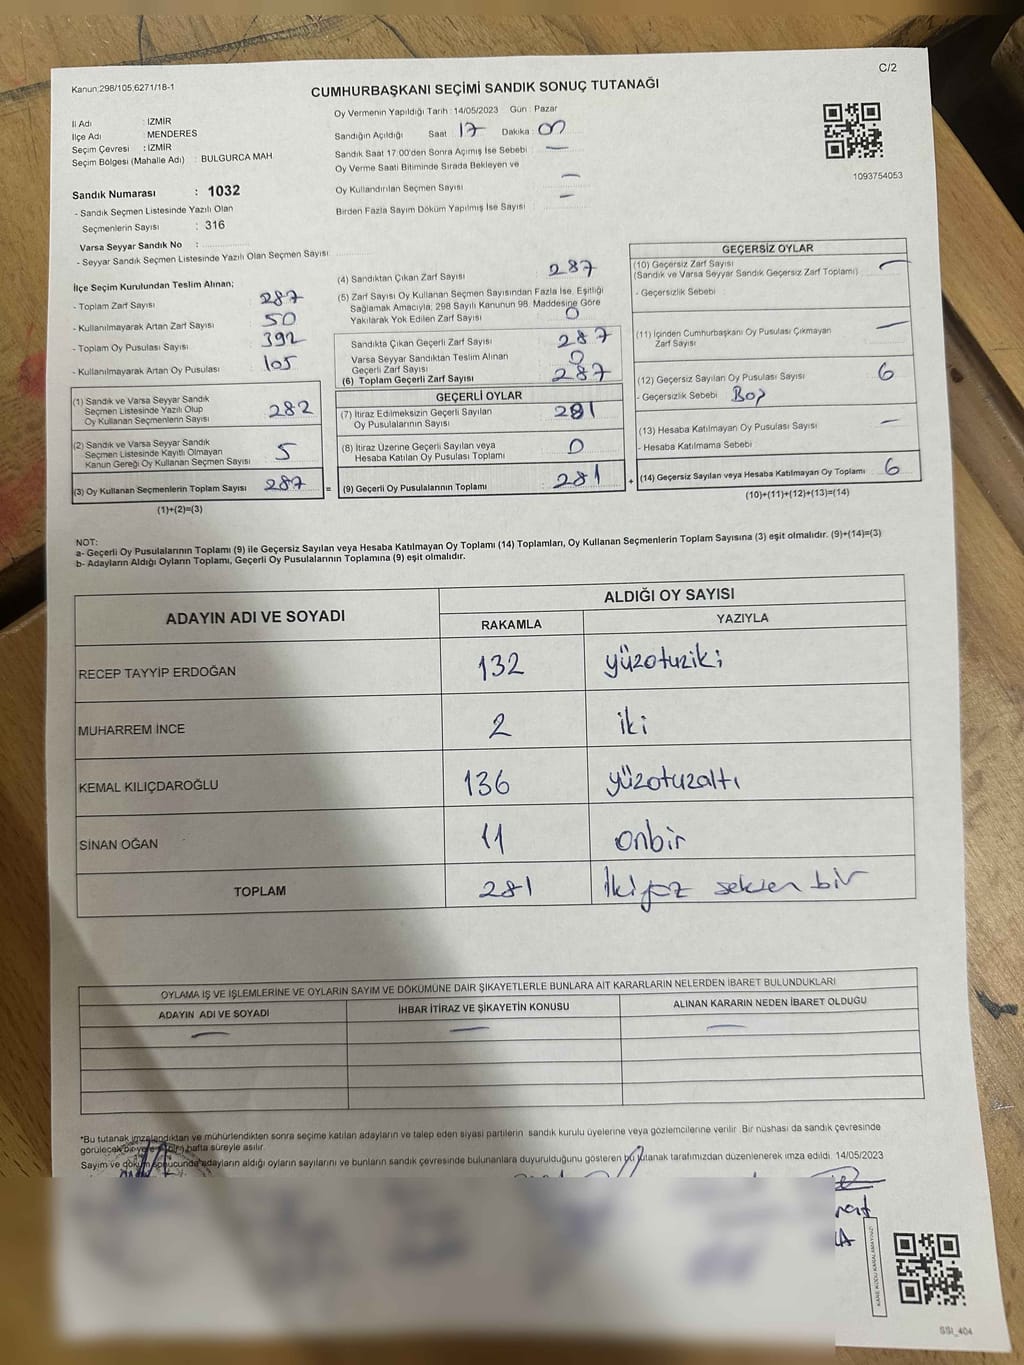 Kanun:298/105,6271/18-1
C/2
CUMHURBAŞKANI SEÇİMİ SANDIK SONUÇ TUTANAĞI
İl Adı : İZMİR
İlçe Adı : MENDERES
Seçim Çevresi : İZMİR
Seçim Bölgesi (Mahalle Adı) : BULGURCA MAH
Sandık Numarası : 1032
- Sandık Seçmen Listesinde Yazılı Olan
Seçmenlerin Sayısı : 316
Varsa Seyyar Sandık No :
- Seyyar Sandık Seçmen Listesinde Yazılı Olan Seçmen Sayısı
Oy Vermenin Yapıldığı Tarih : 14/05/2023 Gün : Pazar
Sandığın Açıldığı Saat 17 Dakika : 00
Sandık Saat 17:00'den Sonra Açılmış İse Sebebi : —
Oy Verme Saati Bitiminde Sırada Bekleyen ve
Oy Kullandırılan Seçmen Sayısı —
Birden Fazla Sayım Döküm Yapılmış İse Sayısı : —
1093754053
İlçe Seçim Kurulundan Teslim Alınan;
- Toplam Zarf Sayısı : 287
- Kullanılmayarak Artan Zarf Sayısı : 50
- Toplam Oy Pusulası Sayısı : 392
- Kullanılmayarak Artan Oy Pusulası : 105
(1) Sandık ve Varsa Seyyar Sandık
Seçmen Listesinde Yazılı Olup
Oy Kullanan Seçmenlerin Sayısı : 282
(2) Sandık ve Varsa Seyyar Sandık
Seçmen Listesinde Kayıtlı Olmayan
Kanun Gereği Oy Kullanan Seçmen Sayısı : 5
(3) Oy Kullanan Seçmenlerin Toplam Sayısı : 287
(1)+(2)=(3)
(4) Sandıktan Çıkan Zarf Sayısı : 287
(5) Zarf Sayısı Oy Kullanan Seçmen Sayısından Fazla İse, Eşitliği
Sağlamak Amacıyla, 298 Sayılı Kanunun 98. Maddesine Göre
Yakılarak Yok Edilen Zarf Sayısı : 0
Sandıkta Çıkan Geçerli Zarf Sayısı : 287
Varsa Seyyar Sandıktan Teslim Alınan
Geçerli Zarf Sayısı : 0
(6) Toplam Geçerli Zarf Sayısı : 287
GEÇERLİ OYLAR
(7) İtiraz Edilmeksizin Geçerli Sayılan
Oy Pusulalarının Sayısı : 281
(8) İtiraz Üzerine Geçerli Sayılan veya
Hesaba Katılan Oy Pusulası Toplamı : 0
= (9) Geçerli Oy Pusulalarının Toplamı : 281
GEÇERSİZ OYLAR
(10) Geçersiz Zarf Sayısı : —
(Sandık ve Varsa Seyyar Sandık Geçersiz Zarf Toplamı)
- Geçersizlik Sebebi :
(11) İçinden Cumhurbaşkanı Oy Pusulası Çıkmayan
Zarf Sayısı : —
(12) Geçersiz Sayılan Oy Pusulası Sayısı : 6
- Geçersizlik Sebebi
(13) Hesaba Katılmayan Oy Pusulası Sayısı : —
- Hesaba Katılmama Sebebi :
+ (14) Geçersiz Sayılan veya Hesaba Katılmayan Oy Toplamı : 6
(10)+(11)+(12)+(13)=(14)
NOT:
a- Geçerli Oy Pusulalarının Toplamı (9) ile Geçersiz Sayılan veya Hesaba Katılmayan Oy Toplamı (14) Toplamları, Oy Kullanan Seçmenlerin Toplam Sayısına (3) eşit olmalıdır. (9)+(14)=(3)
b- Adayların Aldığı Oyların Toplamı, Geçerli Oy Pusulalarının Toplamına (9) eşit olmalıdır.
ADAYIN ADI VE SOYADI
ALDIĞI OY SAYISI
RAKAMLA YAZIYLA
RECEP TAYYİP ERDOĞAN 132 yüzotuziki
MUHARREM İNCE 2 iki
KEMAL KILIÇDAROĞLU 136 yüzotuzaltı
SİNAN OĞAN 11 onbir
TOPLAM 281 İkiyüz seksen bir
OYLAMA İŞ VE İŞLEMLERİNE VE OYLARIN SAYIM VE DÖKÜMÜNE DAİR ŞİKAYETLERLE BUNLARA AİT KARARLARIN NELERDEN İBARET BULUNDUKLARI
ADAYIN ADI VE SOYADI İHBAR İTİRAZ VE ŞİKAYETİN KONUSU ALINAN KARARIN NEDEN İBARET OLDUĞU
— — —
*Bu tutanak imzalandıktan ve mühürlendikten sonra seçime katılan adayların ve talep eden siyasi partilerin sandık kurulu üyelerine veya gözlemcilerine verilir. Bir nüshası da sandık çevresinde
görülecek bir yere bir hafta süreyle asılır.
Sayım ve döküm sonucunda adayların aldığı oyların sayılarını ve bunların sandık çevresinde bulunanlara duyurulduğunu gösteren bu tutanak tarafımızdan düzenlenerek imza edildi. 14/05/2023
KARE KODU KARALAMAYINIZ!
SSI_404